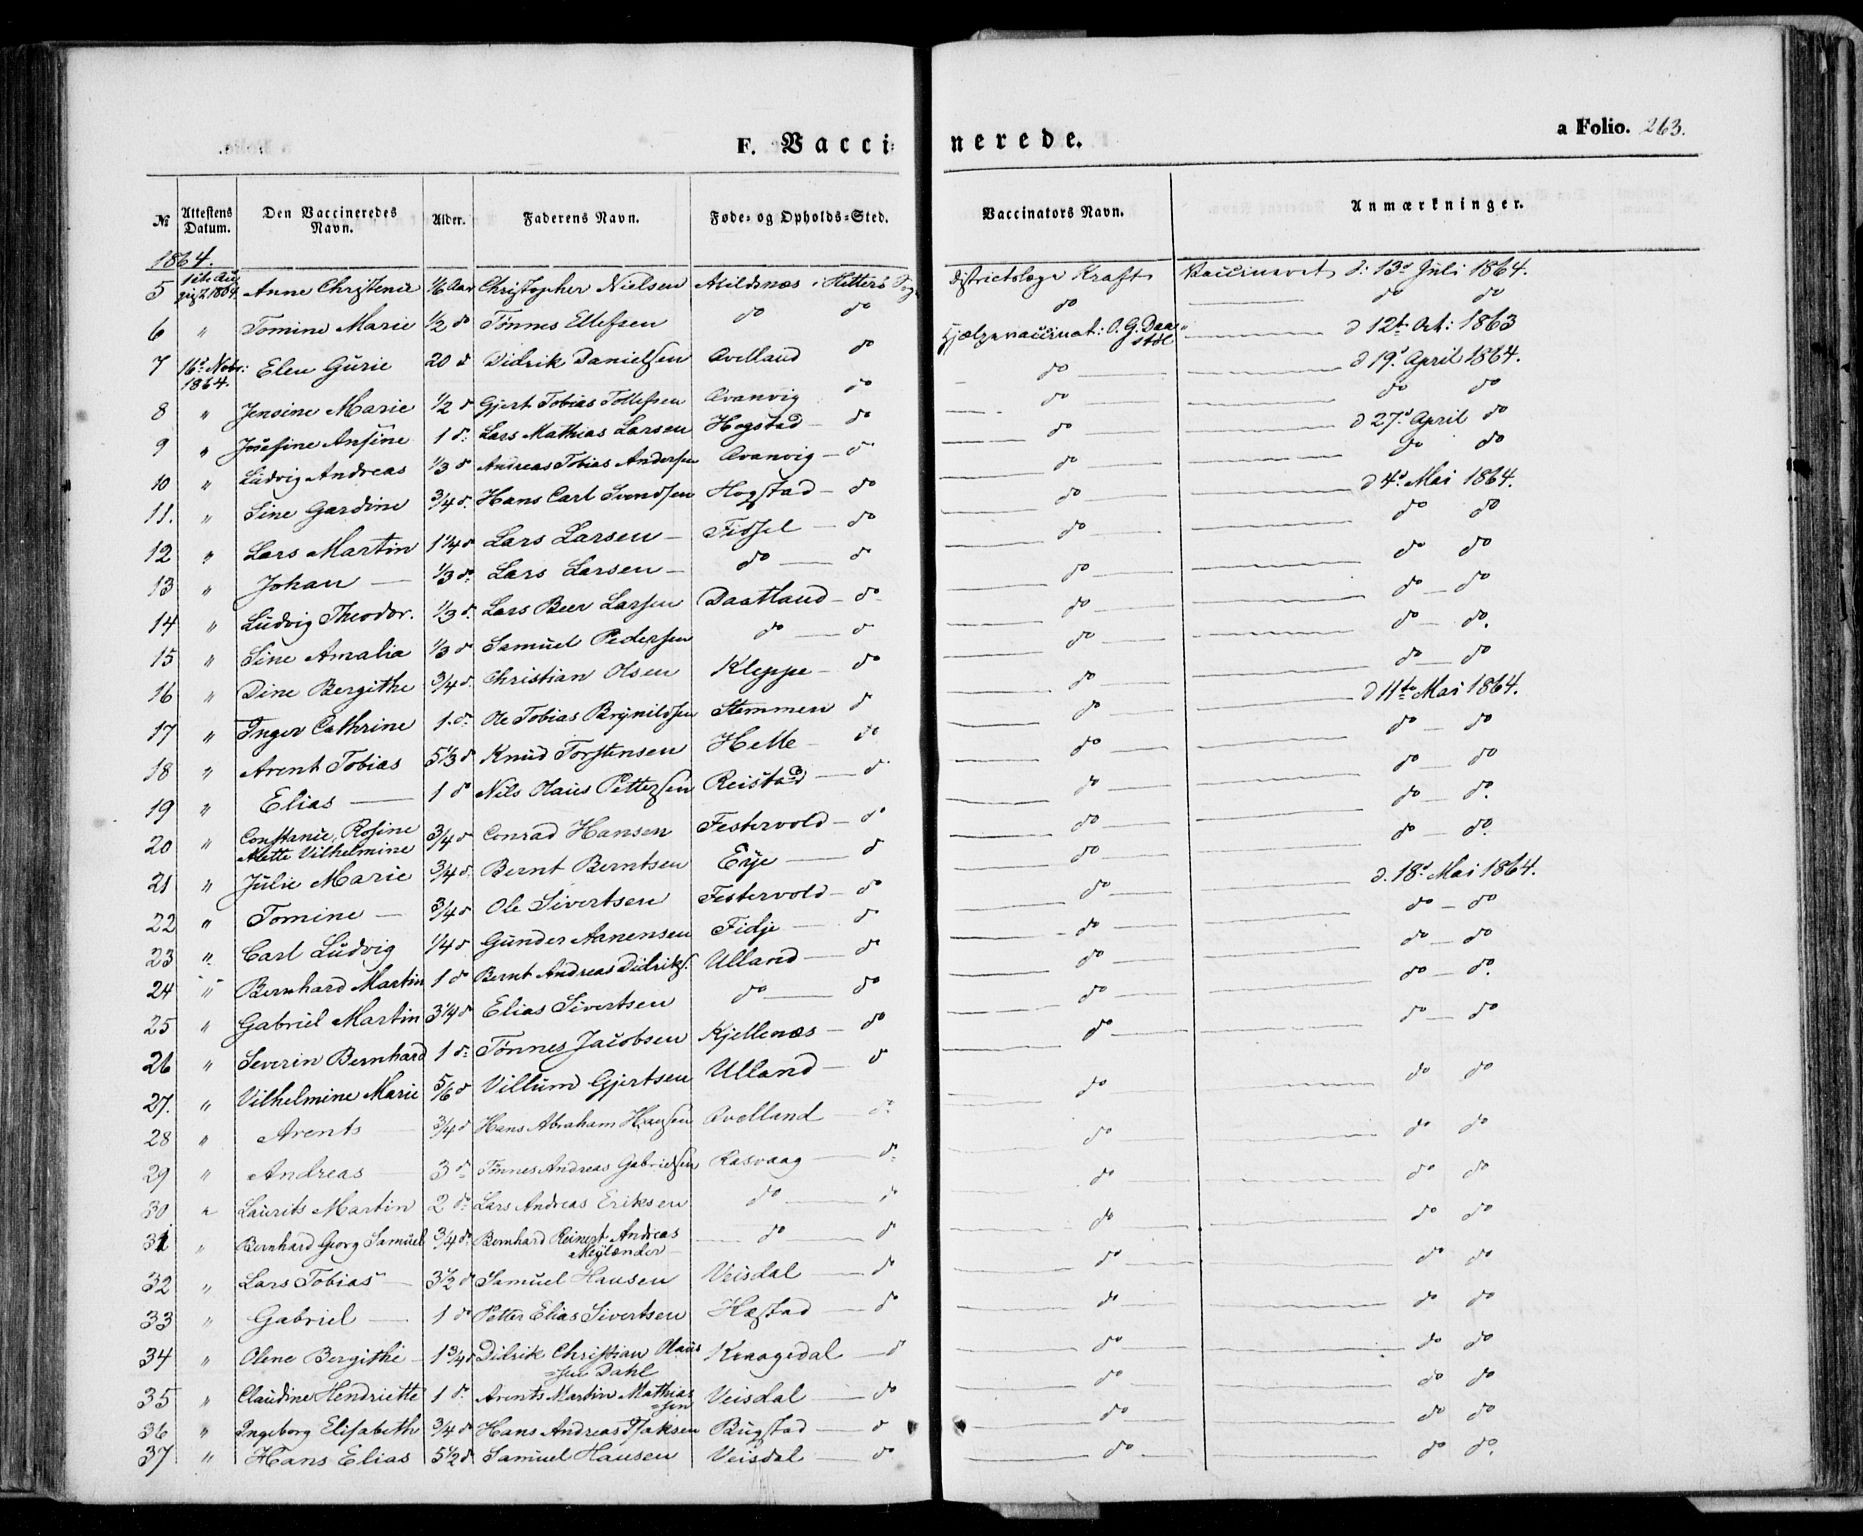 F. Vaccinerede.
a Folio. 263.
№ | Attestens Datum. | Den Vaccineredes Navn. | Alder. | Faderens Navn. | Føde- og Opholds-Sted. | Vaccinators Navn. | Anmærkninger.
1864.
5 | 1ste August 1864. | Anne Christenie | 1/6 Aar | Christopher Nielsen | Abildsnæs i Hitterø Sogn | Districtslæge Kraft | Vaccineret d: 13d Juli 1864.
6 | " | Tomine Marie | 1/2 do | Tønnes Ellefsen | do do | do | do do
7 | 16d Nobr: 1864. | Elen Gurie | 20 d | Didrik Danielsen | Qvelland do | Hjælpevaccinat: O. G. Daatstøl | d 12te Oct: 1863
8 | " | Jensine Marie | 1/2 d | Gjert Tobias Tollefsen | Qvanvig do | do | d 19d April 1864.
9 | " | Josefine Ansine | 1 d: | Lars Mathias Larsen | Hogstad do | do | do do
10 | " | Ludvig Andreas | 1/3 d | Andreas Tobias Andersen | Qvanvig d | do | d 27d April do
11. | " | Sine Gardine | 3/4 d. | Hans Carl Svendsen | Hogstad do | do | do do
12 | " | Lars Martin | 1 1/4 d | Lars Larsen | Fidsel do | do | d 4d Mai 1864.
13 | " | Johan | 1/3 d: | Lars Larsen | do do | do | do do
14 | " | Ludvig Theodor. | 1/3 d. | Lars Beer Larsen | Daatland do | do | do do
15 | " | Sine Amalia | 1/3 d | Samuel Pedersen | do d | do | do do
16 | " | Dine Bergithe | 3/4 d. | Christian Olsen | Kleppe do | do | do do.
17 | " | Inger Cathrine | 1. d: | Ole Tobias Brynildsen | Stemmen d | do | do do
18 | " | Arent Tobias | 5 1/3 d | Knud Torstensen | Helle do | do | d 11te Mai 1864.
19 | " | Elias | 1 d | Nils Olaus Pettersen | Reistad d. | do | do do
20 | " | Constanie, Rosine Mette Vilhelmine | 3/4 d | Conrad Hansen | Festervold d | do | do do
21 | " | Julie Marie | 3/4 d. | Bernt Berntsen | Eye d | do | do do.
22 | " | Tomine | 3/4 d | Ole Sivertsen | Festervold do | do | do do.
23 | " | Carl Ludvig | 1/4 d | Gunder Aanensen | Fidje do | do | d. 18d Mai 1864.
24 | " | Bernhard Martin | 1 d | Bernt Andreas Didriks. | Ulland do | do | do do
25 | " | Gabriel Martin | 3 1/4 d | Elias Sivertsen | do do | do | do do
26 | " | Severin Bernhard | 1 d: | Tønnes Jacobsen | Kjellenæs do | do | do do.
27. | " | Vilhelmine Marie | 5/6 d | Villum Gjertsen | Ulland d | do | do do
28 | " | Arents | 3/4 d | Hans Abraham Hansen | Qvelland d: | do | do do
29 | " | Andreas | 3 d: | Tønnes Andreas Gabrielsen | Rasvaag d: | do | do do
30 | " | Laurits Martin | 2 d: | Lars Andreas Eriksen | do d | do | do do
31 | " | Bernhard Georg Samuel | 3/4 d: | Bernhard Reinert Andreas Meylænder | do d | do | do do
32 | " | Lars Tobias | 3 1/2 d | Samuel Hansen | Veisdal d | do | do do
33 | " | Gabriel | 1 d | Petter Elias Sivertsen | Hæstad d | do | do do
34 | " | Olene Bergithe | 1 3/4 d | Didrik Christian Olaussen Dahl | Knagedal d | do | do do
35 | " | Claudine Hendriette | 1 d: | Arents Martin Mathiassen | Veisdal do | do | do do
36 | " | Ingeborg Elisabeth | 3/4 d | Hans Andreas Isaksen | Bugstad d | do | do do
37 | " | Hans Elias | 5 1/2 d | Samuel Hansen | Veisdal do | do | do do.